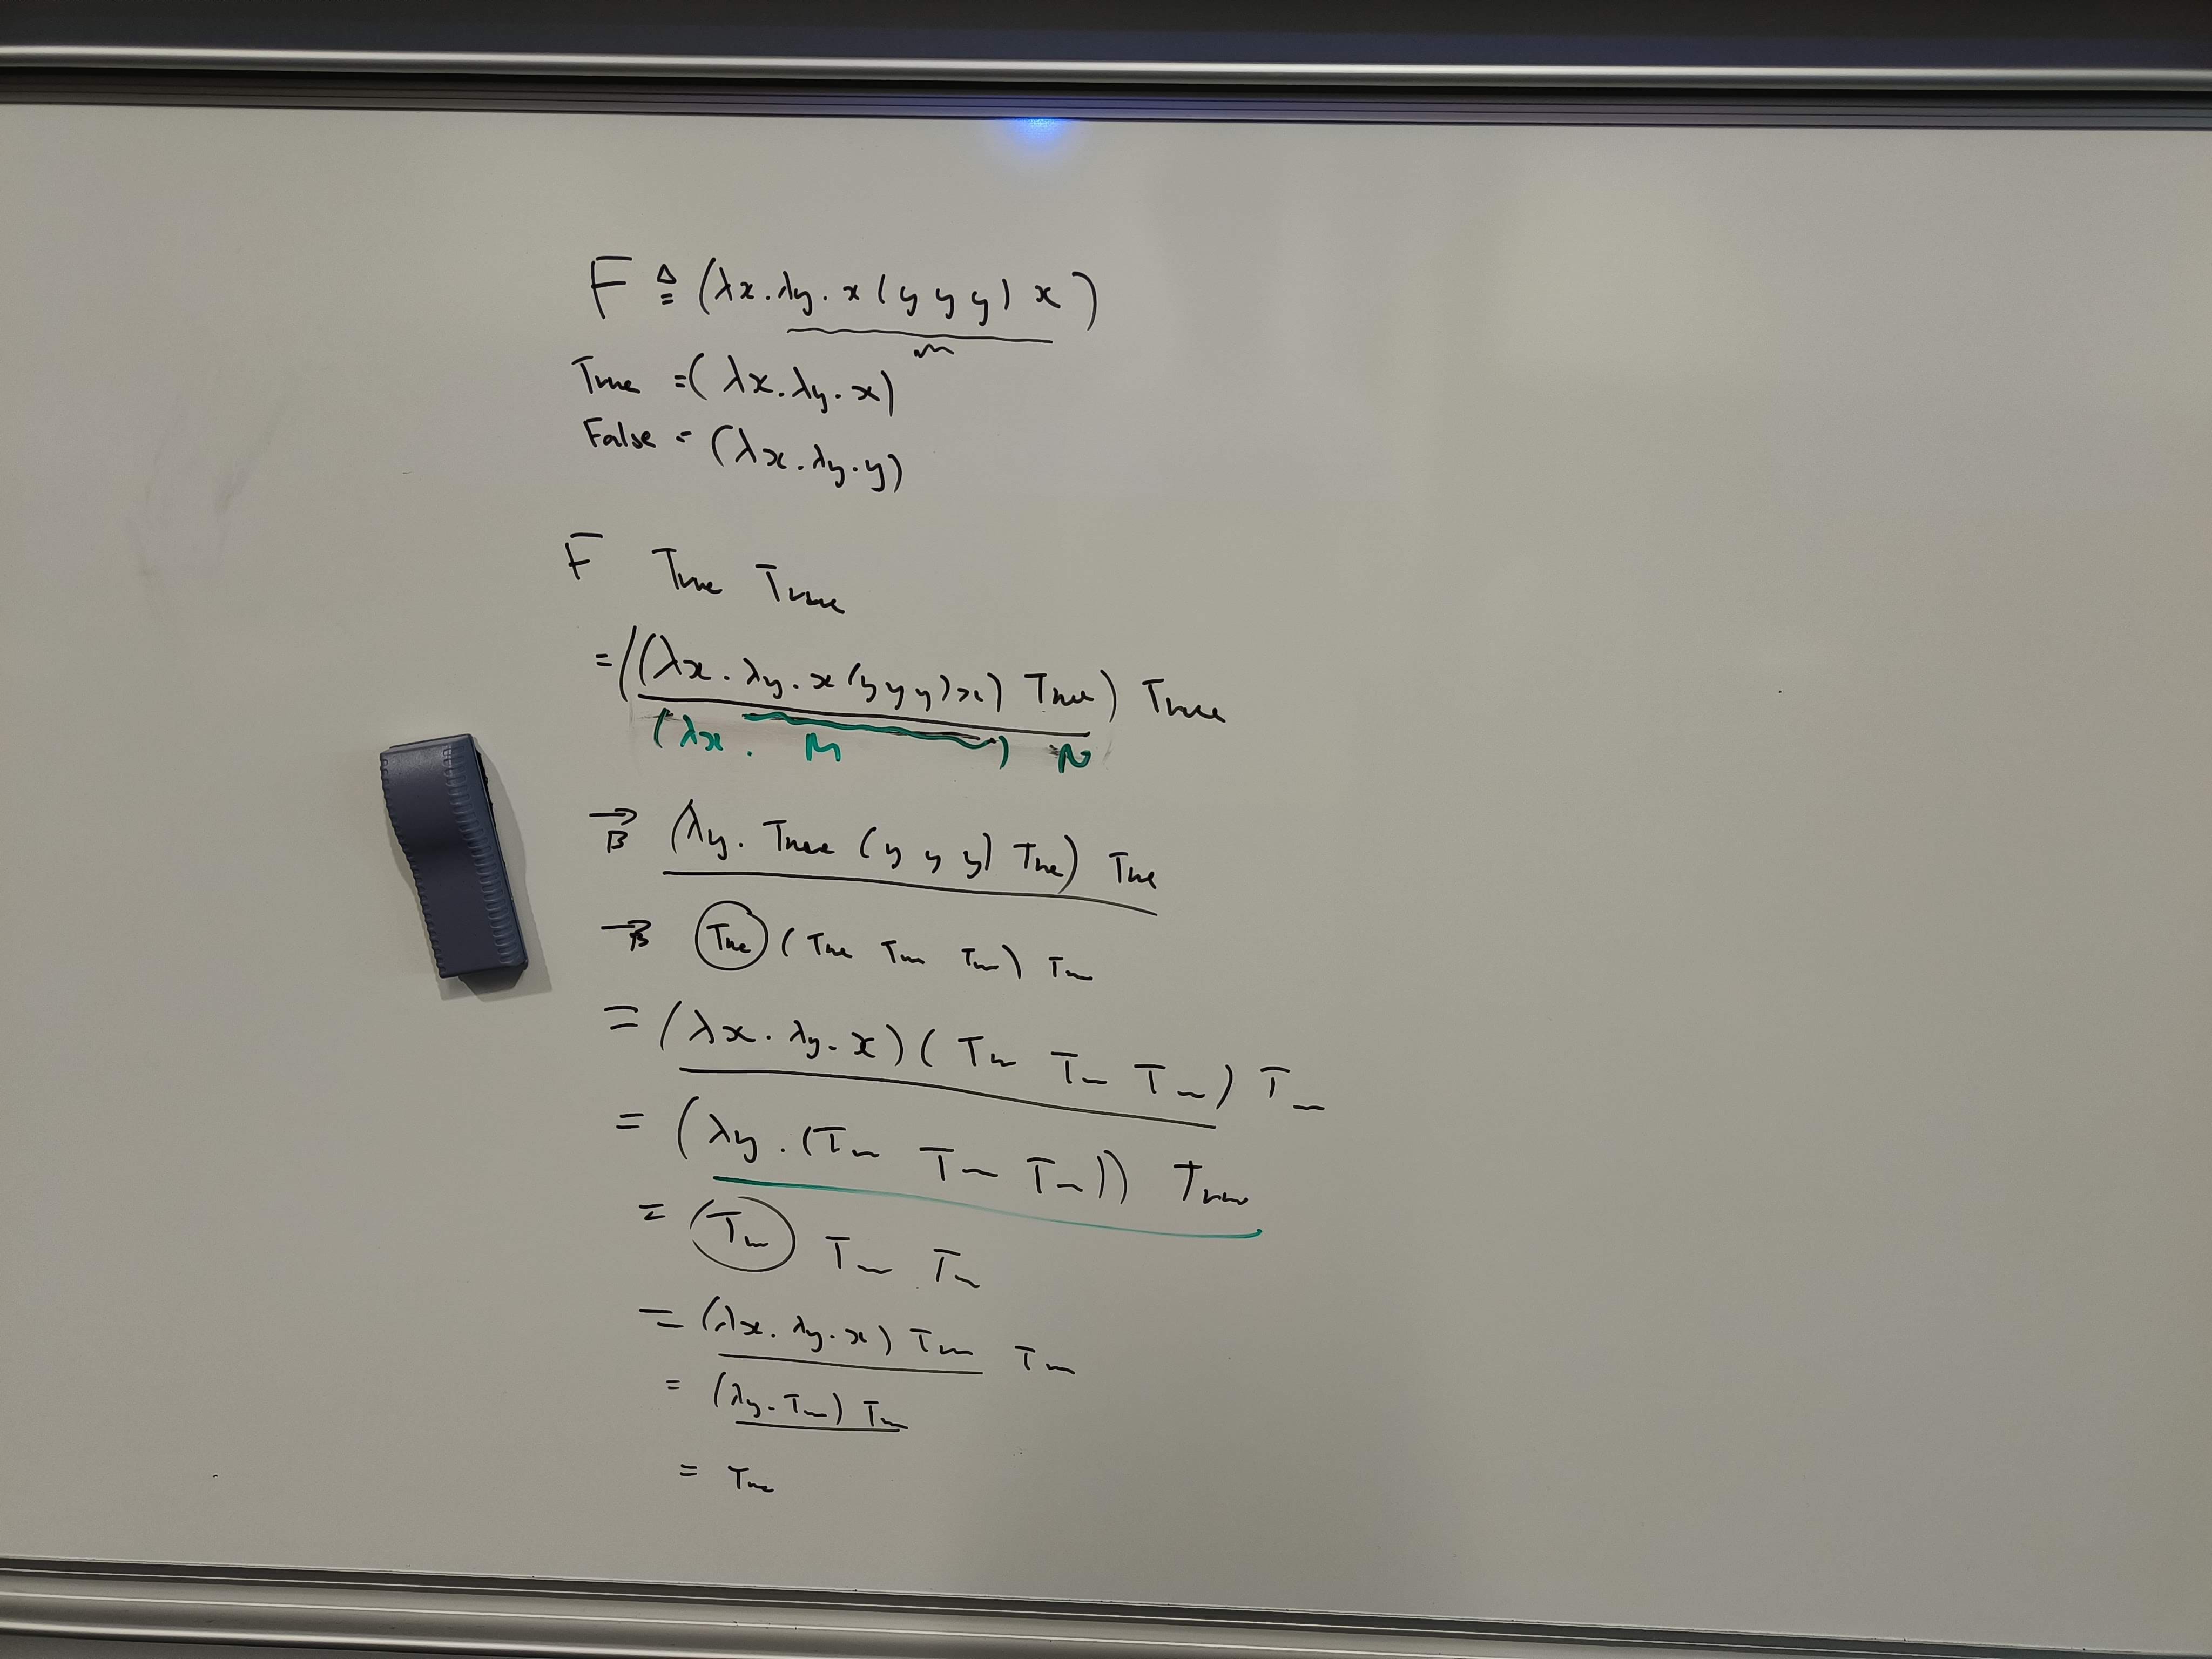 F ≜ (λx.λy. x (y y y) x)
M
True = (λx.λy.x)
False = (λx.λy.y)
F True True
= ((λx.λy.x(y y y)x) True) True
(λx. M) N
→β (λy. True (y y y) True) True
→β True (True True True) True
= (λx.λy.x)(True True True) True
= (λy.(True True True)) True
= True True True
= (λx.λy.x) True True
= (λy.True) True
= True